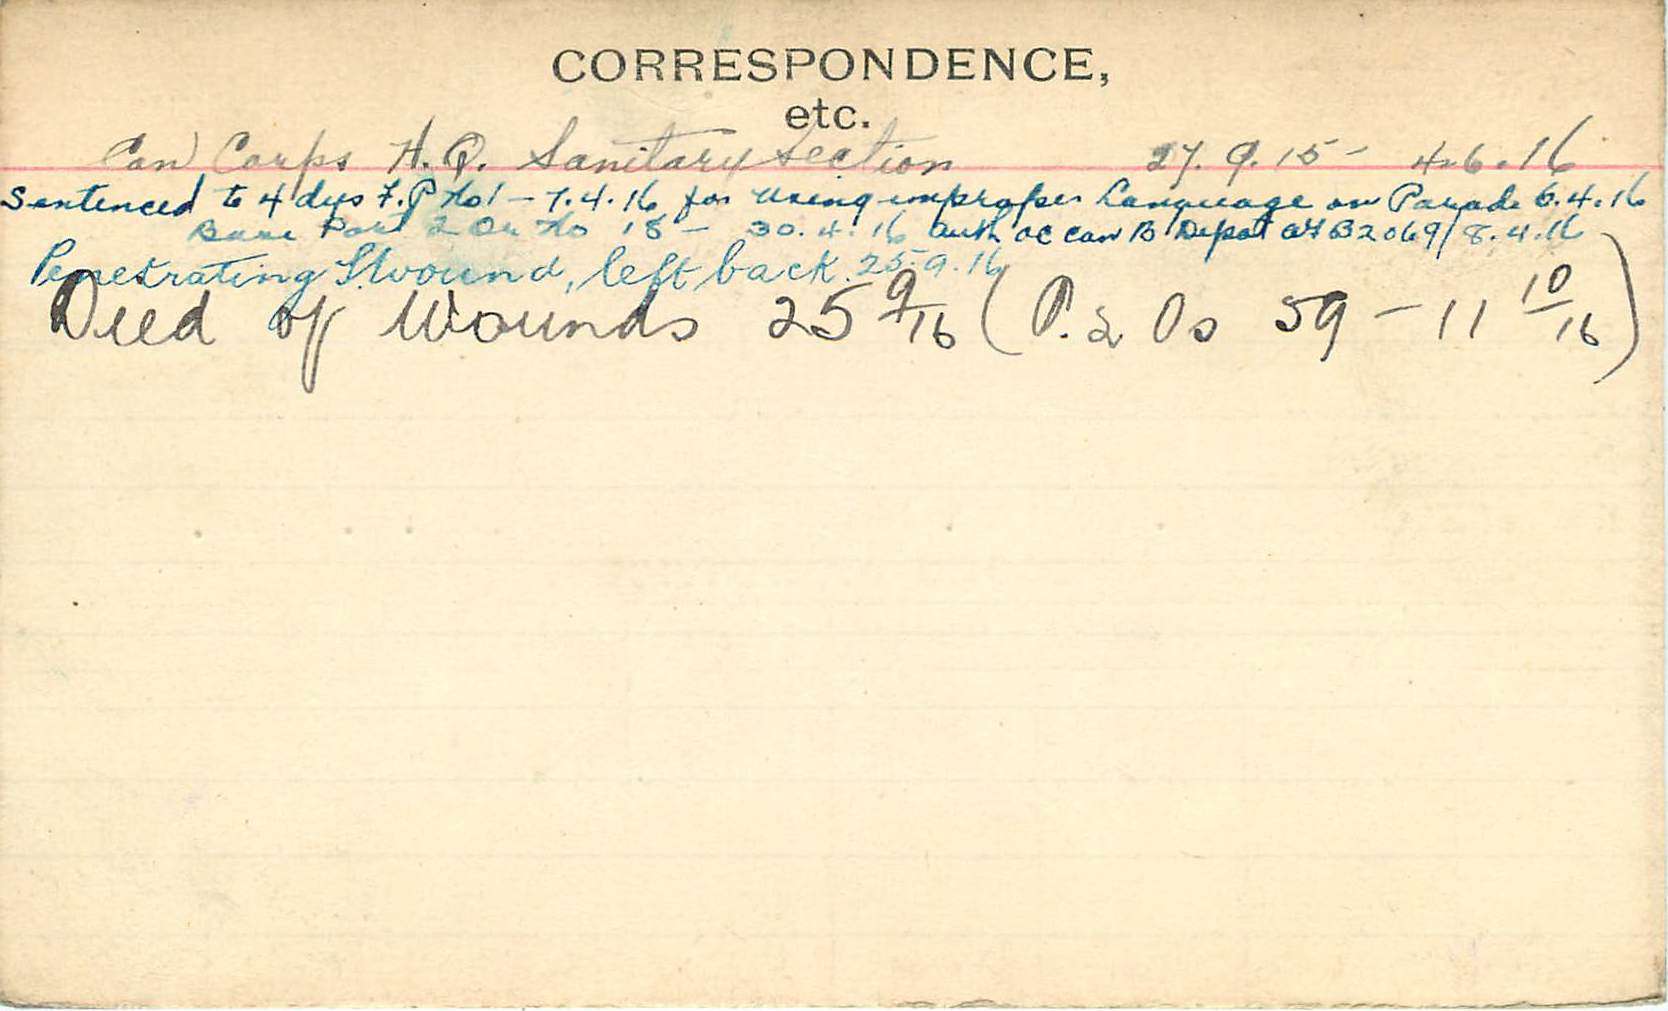 CORRESPONDENCE,
etc.
Can Corps H.Q. Sanitary Section 27.9.15 - 4.6.16
Sentenced to 4 dys F.P No 1 - 7.4.16 for using improper Language on Parade 6.4.16
Base Part 2 Or No 18 - 30.4.16 Auth OC Can B Depot AF B2069/8.4.16
Penetrating S.wound, left back 25.9.16
Died of Wounds 25 9/16 (P. 2 Os 59 - 11 10/16)